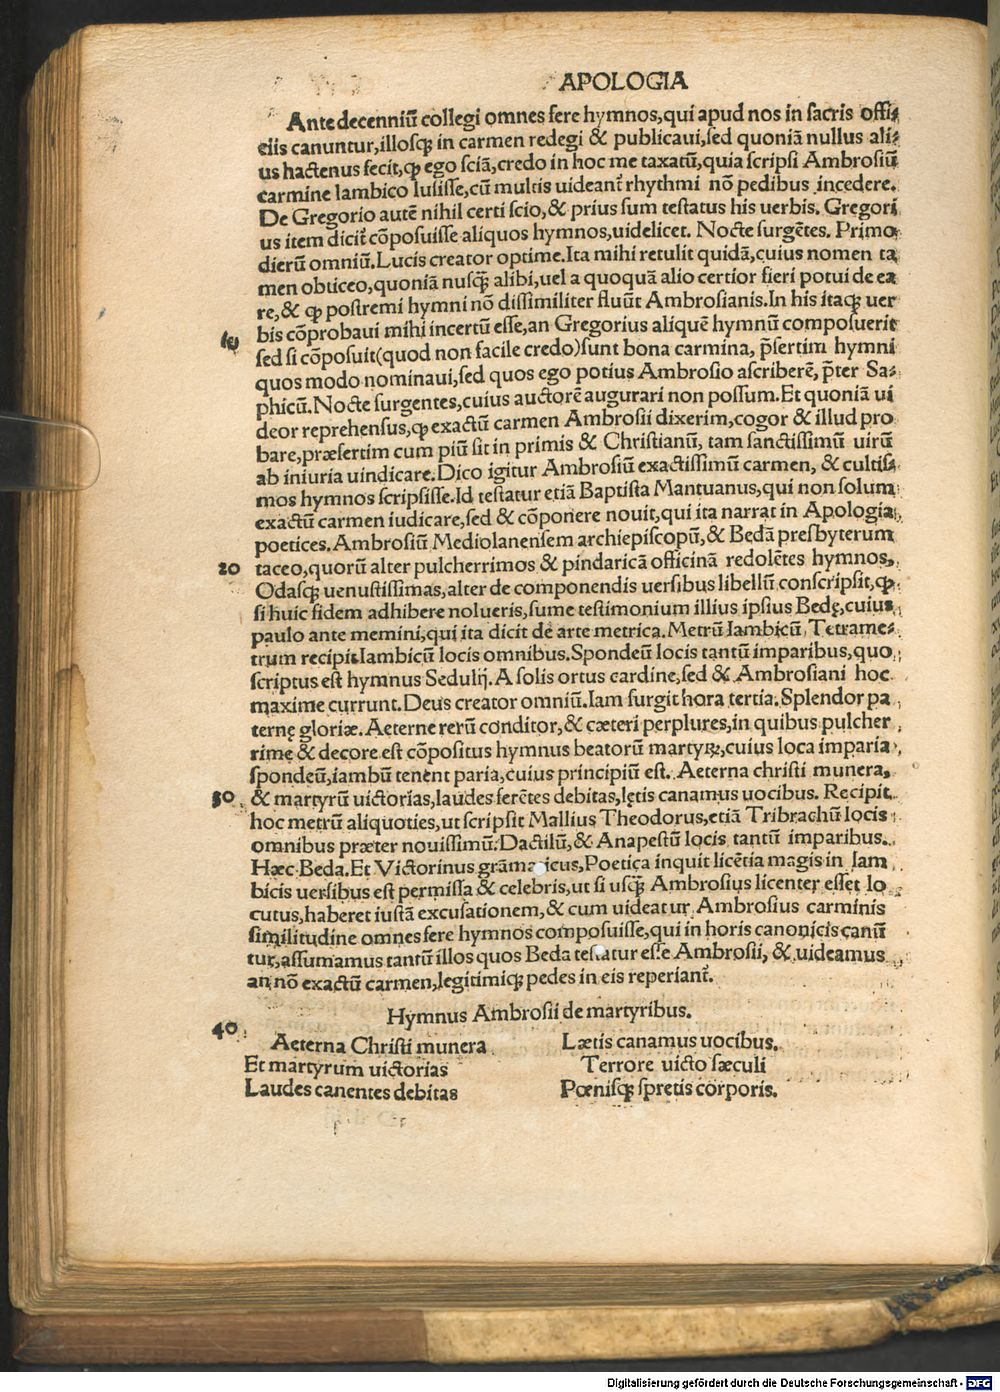 APOLOGIA
Ante decenniū collegi omnes fere hymnos,qui apud nos in sacris offi⸗
ciis canuntur,illosqꝫ in carmen redegi & publicaui,sed quoniā nullus ali⸗
us hactenus fecit,ꝙ ego sciā,credo in hoc me taxatū,quia scripsi Ambrosiū
carmine Iambico lusisse,cū multis uideant̃ rhythmi nō pedibus incedere.
De Gregorio autē nihil certi scio,& prius sum testatus his uerbis. Gregori
us item dicit̃ cōposuisse aliquos hymnos,uidelicet. Nocte surgētes. Primo
dierū omniū.Lucis creator optime.Ita mihi retulit quidā,cuius nomen ta
men obticeo,quoniā nusqꝫ̃ alibi,uel a quoquā alio certior fieri potui de ea
re,& ꝙ postremi hymni nō dissimiliter fluūt Ambrosianis.In his itaqꝫ uer
bis cōprobaui mihi incertū esse,an Gregorius aliquē hymnū composuerit
10 sed si cōposuit(quod non facile credo)sunt bona carmina, p̃sertim hymni
quos modo nominaui,sed quos ego potius Ambrosio ascriberē, p̃ter Sa⸗
phicū.Nocte surgentes,cuius auctorē augurari non possum.Et quoniā ui
deor reprehensus,ꝙ exactū carmen Ambrosii dixerim,cogor & illud pro
bare,præsertim cum piū sit in primis & Christianū, tam sanctissimū uirū
ab iniuria uindicare.Dico igitur Ambrosiū exactissimū carmen, & cultiss⸗
mos hymnos scripsisse.Id testatur etiā Baptista Mantuanus,qui non solum
exactū carmen iudicare,sed & cōponere nouit,qui ita narrat in Apologia
poetices. Ambrosiū Mediolanensem archiepiscopū,& Bedā presbyterum
20 taceo,quorū alter pulcherrimos & pindaricā officinā redolētes hymnos,
Odasqꝫ uenustissimas,alter de componendis uersibus libellū conscripsit,ꝙ
si huic fidem adhibere nolueris,sume testimonium illius ipsius Bedę,cuius
paulo ante memini,qui ita dicit de arte metrica.Metrū Iambicū Tetrame⸗
trum recipit Iambicū locis omnibus.Spondeū locis tantū imparibus,quo
scriptus est hymnus Sedulij.A solis ortus cardine,sed & Ambrosiani hoc
maxime currunt.Deus creator omniū.Iam surgit hora tertia.Splendor pa
ternę gloriæ.Aeterne rerū conditor,& cæteri perplures,in quibus pulcher
rime & decore est cōpositus hymnus beatorū martyꝝ,cuius loca imparia
spondeū,iambū tenent paria,cuius principiū est. Aeterna christi munera,
30 & martyrū uictorias,laudes ferētes debitas,lętis canamus uocibus. Recipit
hoc metrū aliquoties,ut scripsit Mallius Theodorus,etiā Tribrachū locis
omnibus præter nouissimū.Dactilū,& Anapestū locis tantū imparibus.
Hæc Beda.Et Victorinus grāmaticus,Poetica inquit licētia magis in Iam
bicis uersibus est permissa & celebris,ut si usqꝫ̃ Ambrosius licenter esset lo
cutus,haberet iustā excusationem,& cum uideatur Ambrosius carminis
similitudine omnes fere hymnos composuisse,qui in horis canonicis canū
tur,assumamus tantū illos quos Beda testatur esse Ambrosii, & uideamus
an nō exactū carmen,legitimiqꝫ pedes in eis reperiant̃.
Hymnus Ambrosii de martyribus.
40 Aeterna Christi munera
Et martyrum uictorias
Laudes canentes debitas
Lætis canamus uocibus.
Terrore uicto sæculi
Pœnisqꝫ spretis corporis.
Digitalisierung gefördert durch die Deutsche Forschungsgemeinschaft - DFG